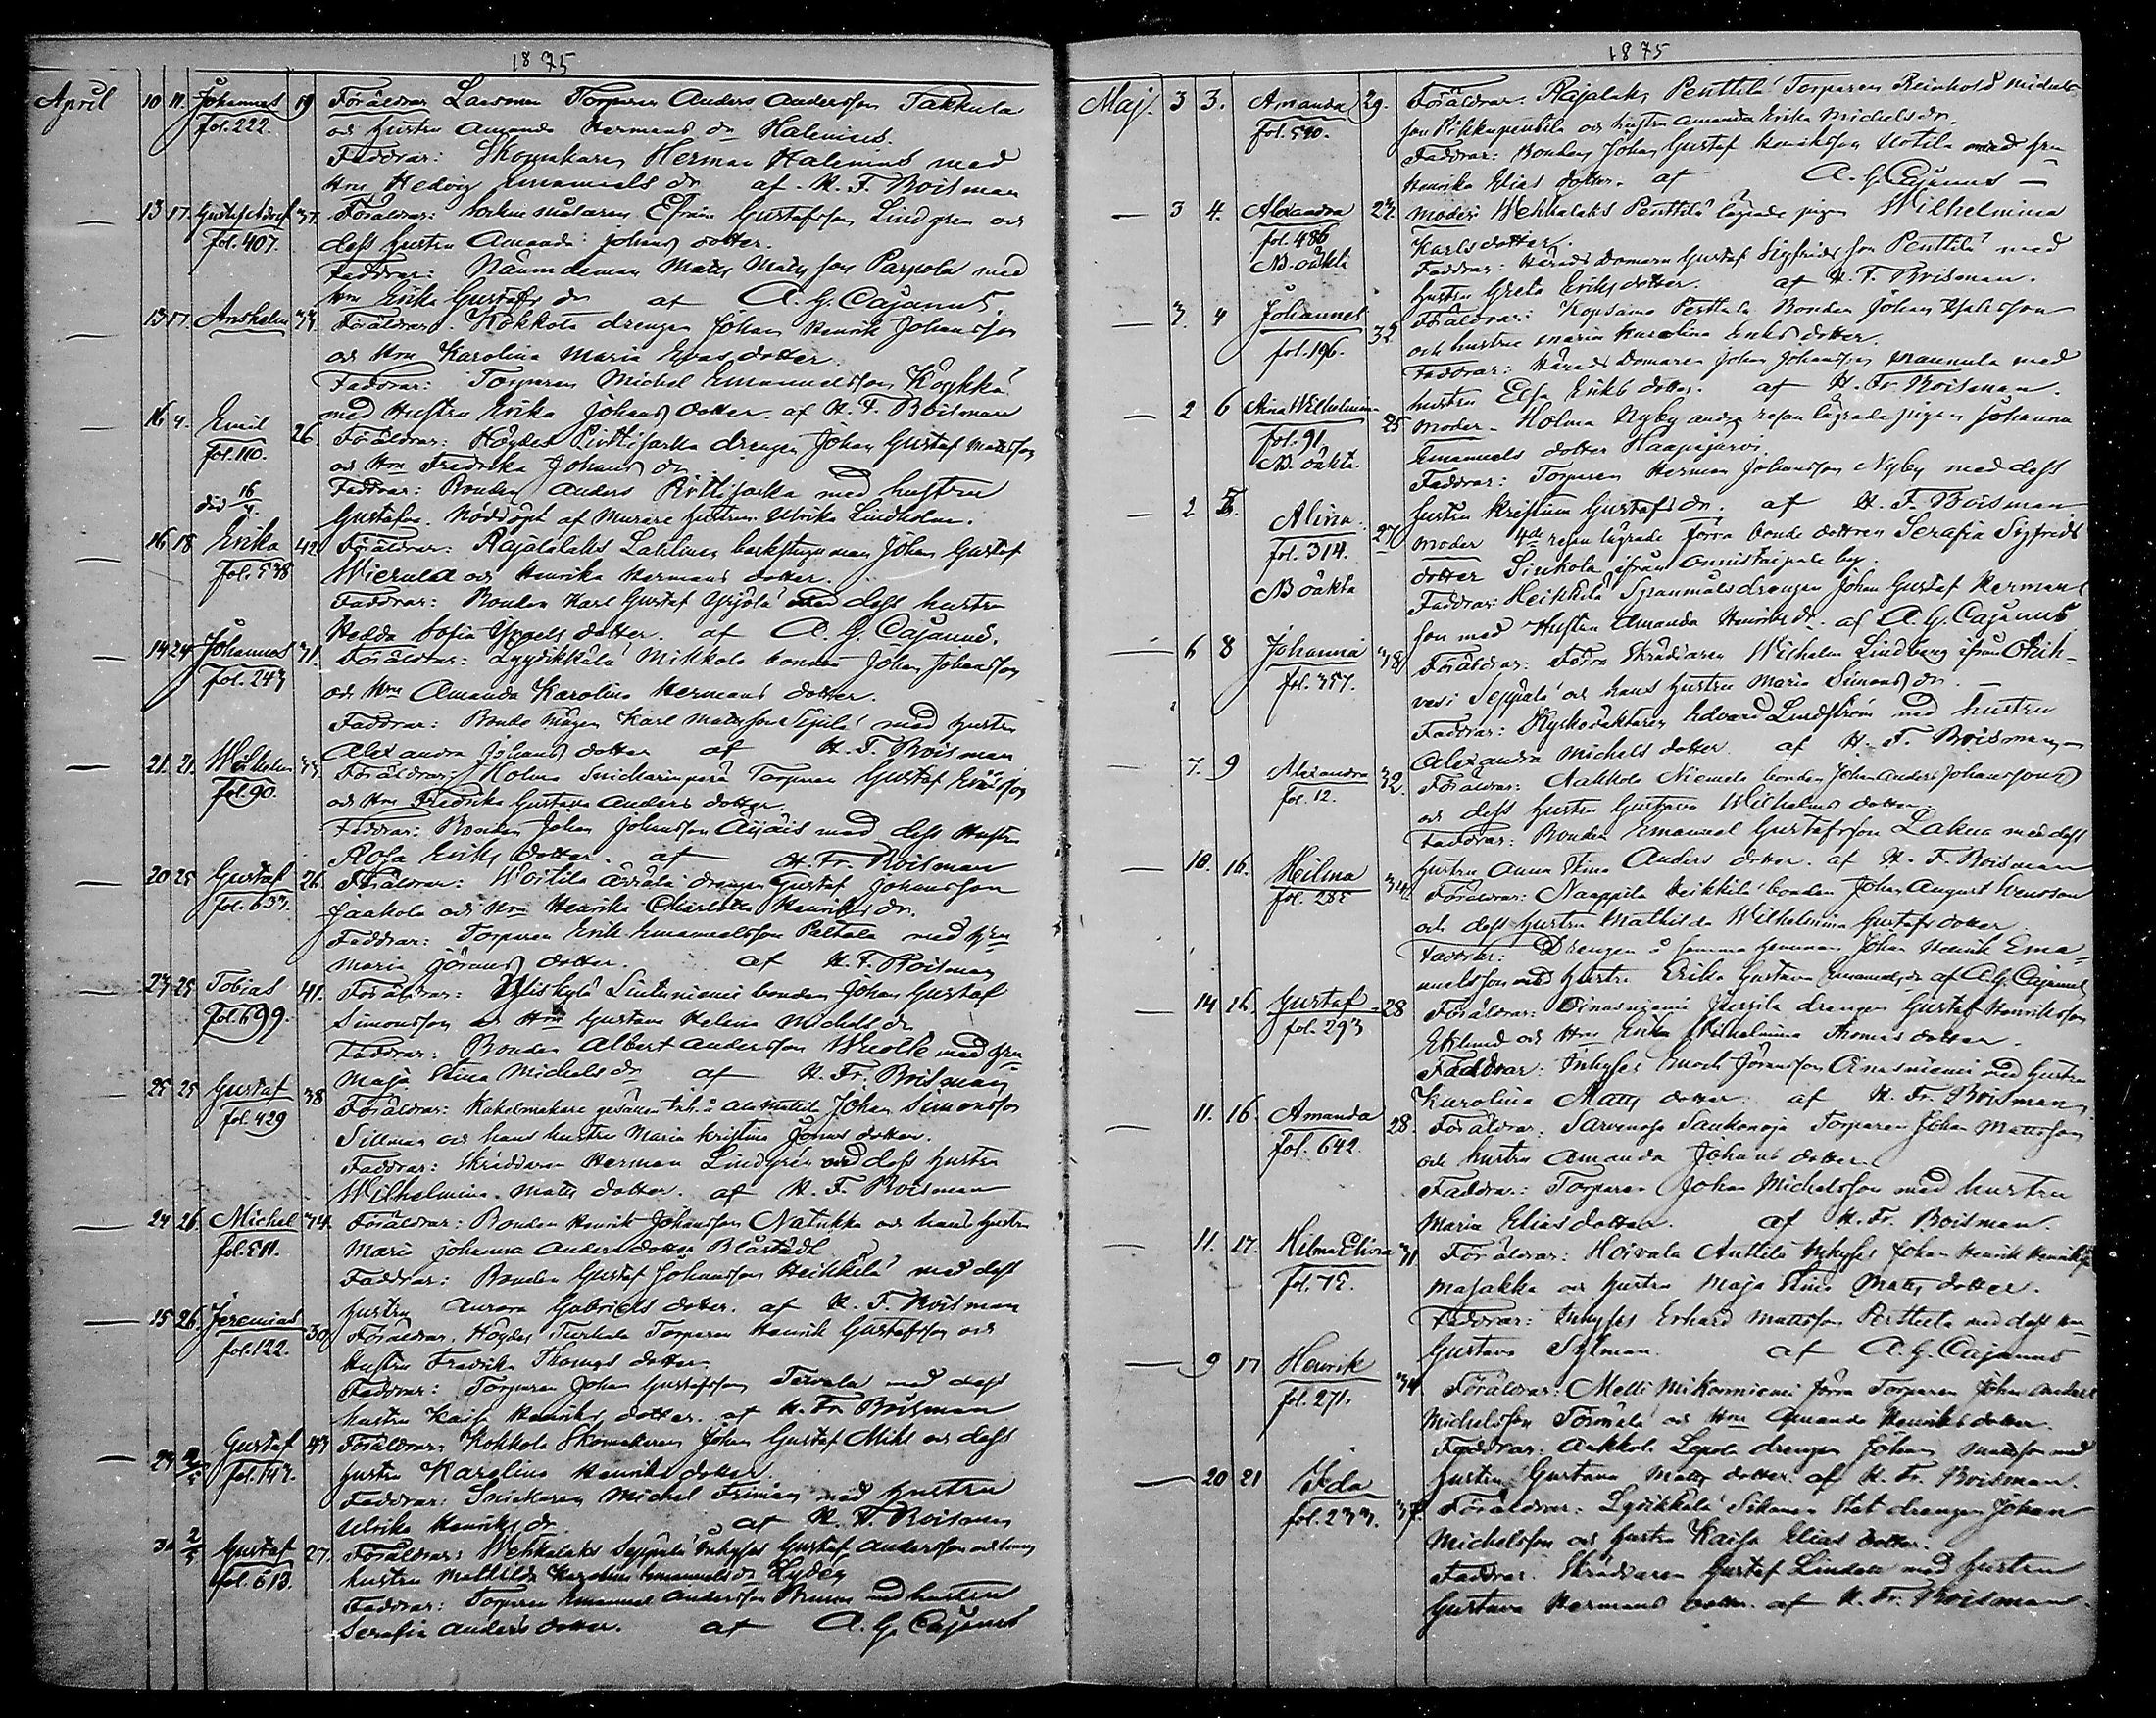 1875
April 10 11. Johannes 19 Föräldrar Torparen Anders Andersson Takkula
fol. 222. och hustru Amanda Hermans dr Halenius.
Faddrar: Skomakaren Herman Halenius med
Hru Hedvig Emanuels dr af H. F. Boisman
— 13 17. Gustaf Adolf 37. Föräldrar: Sockne målaren Efraim Gustafsson Lindgren och
fol. 407. dess hustru Amanda Johans dotter.
Faddrar: Nämndeman Matts Matts son Parpola med
hru Erika Gustafs dr af A. G. Cajanus
— 13 17. Anshelm 33 Föräldrar. Kokkola drengen Johan Henrik Johansson
och Hru Karolina Maria Evas dotter.
Faddrar: Torparen Michel Emanuelsson Köykkä
med Hustru Erika Johans dotter. af H. F. Boisman
— 16 4. Emil 26 Föräldrar: Höydes Pirttisarka drengen Johan Gustaf Mattsson
fol. 110. och Hru Fredrika Johans dr
Faddrar: Bonden Anders Pirttisarka med hustru
död 16/4. Gustafva. Nöddöpt af Murare hustrun Ulrika Lindholm.
— 16 18 Erika 42 Föräldrar: Rajalaks Lahtinen backstuguman Johan Gustaf
fol. 538 Wierula och Henrika Hermans dotter.
Faddrar: Bonden Karl Gustaf Yrjölä med dess hustru
Hedda Sofia dotter. af A. G. Cajanus.
— 14 24 Johannes 31. Föräldrar: Lyydikkälä Mikkola bonden Johan Johansson
fol. 243 och Hru Amanda Karolina Hermans dotter.
Faddrar: Bonde mågen Karl Mattsson med hustru
Alexandra Johans dotter af H. F. Boisman
— 21. 21. Wilhelm 33 Föräldrar: Holma Snickarinperä Torparen Gustaf Eriksson
fol. 90. och Hru Fredrika Gustava Anders dotter.
Faddrar: Bonden Johan Johansson Äijäis med dess Hustru
Rosa Eriks dotter. af H. Fr. Boisman
— 20 25 Gustaf 26. Föräldrar: Woitila drengen Gustaf Johansson
fol. 633. Jaakola och Hru Henrika Charlotta Henriks dr.
Faddrar: Torparen Erik Emanuelsson Paltala med Hru
Maria Jöruns dotter. af H. F. Boisman
— 23 25 Tobias 41. Föräldrar: Yliskylä Sintuniemi bonden Johan Gustaf
fol. 699. Simonsson och Hru Gustava Helena Michels dr
Faddrar: Bonden Albert Andersson Wuolle med Hru
Maja Stina Michels dr af H. Fr. Boisman
— 25 25 Gustaf 38 Föräldrar: Kakelmakare gesällen Johan Simonsson
fol. 429 Sillman och hans hustru Maria Kristina Jöruns dotter.
Faddrar: Skräddaren Herman Lindgrén med dess hustru
Wilhelmina. Matts dotter. af H. F. Boisman
— 24 26. Michel 34. Föräldrar: Bonden Henrik Johansson Natukka och hans hustru
fol. 511. Maria Johanna Anders dotter Blåstedt
Faddrar: Bonden Gustaf Johansson Heikkilä med dess
hustru Aurora Gabriels dotter. af H. F. Boisman
— 15 26. Jeremias 30 Föräldrar. Höydes Turkula Torparen Henrik Gustafsson och
fol. 122. Hustru Fredrika Thomas dotter.
Faddrar: Torparen Johan Gustafsson Tervala med dess
hustru Kaisa Henriks dotter. af H. Fr. Boisman
— 24 Gustaf 43 Föräldrar. Kokkola Skomakaren Johan Gustaf Mikl och dess
fol. 143. hustru Karolina Henriks dotter.
Faddrar: Snickaren Michel Friman med hustru
Ulrika Henriks dr. af H. F. Boisman
30 2/5 Gustaf 27. Föräldrar: Wehkalaks Seppälä Inhyses Gustaf Andersson och hans
fol. 613. hustru Mathilda Karolina Emanuels dr Hydén
Faddrar: Torparen Emanuel Andersson med hustru
Serafia Anders dotter. af A. G. Cajanus
1875
Maj. 3 3. Amanda 29. Föräldrar: Rajalaks Penttilä Torparen Reinhold Michels
fol. 540. son Pikkupenttilä och hustru Amanda Erika Michelsdr.
Faddrar: Bonden Johan Gustaf Henriksson Uotila med hru
Henrika Elias dotter. af A. G. Cajanus —
— 3 4. Alexandra 22. Moder: Wehkalaks Penttilä lägrade pigan Wilhelmina
fol. 486 Karls dotter.
NB. oäkta Faddrar: Härads Domaren Gustaf Sigfrids son Penttilä med
hustru Greta Eriks dotter. af H. F. Boisman.
— 3. 4 Johannes 32 Föräldrar: Kopsamo Perttula Bonden Johan
fol. 196. och hustru Maria Karolina Eriks dotter.
Faddrar: Härads Domaren Johan Johansson Mannula med
hustru Elsa Eriks dotter. af H. Fr. Boisman.
— 2 6 Aina Wilhelmina 25 Moder - Holma Nyby andra resan lägrade pigan Johanna
fol. 91 Emanuels dotter Haapajärvi.
NB. oäkta. Faddrar: Torparen Herman Johansson Nyby med dess
hustru Kristina Gustafs dr. af H. F. Boisman
— 2 Alina 27 Moder 4de resan lägrade förra bonde dottren Serafia Sigfrids
fol. 314. dotter Sinkola ifrån Onnistaipale by.
NB oäkta Faddrar: Heikkilä Spannmåls drengen Johan Gustaf Hermans
son med Hustru Amanda Henriks dr. af A. G. Cajanus
— 6 8 Johanna Föräldrar: Förra Skräddaren Wilhelm Lindberg ifrån
fol. 357. vesi Seppälä och hans hustru Maria Simons dr. —
Faddrar: Kyrkovaktaren Edvard Lindström med hustru
Alexandra Michels dotter af H. F. Boisman —
— 7. 9 Alexandra 32. Föräldrar: Aakkola Niemelä bonden Johan Anders Johansson
fol. 12. och dess hustru Gustava Wilhelms dotter.
Faddrar: Bonden Emanuel Gustafsson Lakua med dess
hustru Anna Stina Anders dotter. af H. F. Boisman
— 10. 16. Hilma 34 Föräldrar: Naappila Heikkilä bonden Johan August Svensson
fol. 285 och dess hustru Mathilda Wilhelmina Gustafs dotter
Faddrar: Drengen å samma hemman Johan Henrik Ema-
nuelsson med hustru Erika Gustava Emanuels dr af A. G. Cajanus
— 14 16. Gustaf 28 Föräldrar: Ainasniemi Jussila drengen Gustaf Henriksson
fol. 293 Eklund och Hru Erika Wilhelmina Thomas dotter.
Faddrar: Inhyses Enoch Jöransson Ainasniemi med hustru
Karolina Matts dotter af H. Fr. Boisman
— 11. 16. Amanda 28. Föräldrar. Sarvenoja Saukonoja Torparen Johan Mattsson
fol. 642. och hustru Amanda Johans dotter
Faddrar: Torparen Johan Michelsson med hustru
Maria Elias dotter. af H. Fr. Boisman.
— 11. 17. Hilma Elvira 31 Föräldrar: Hoivala Anttila Inhyses Johan Henrik Henriksson
fol. 75. Masakka och hustru Maja Stina Matts dotter.
Faddrar: Inhyses Erhard Mattsson Perttula med dess hru
Gustava Sylman. af A. G. Cajanus
— 9 17 Henrik 34 Föräldrar: Melli Mikonniemi förra Torparen Johan Anders
fol. 271. Michelsson Törmälä och Hru Amanda Henriks dotter.
Faddrar: Aakkola Lepola drengen Johan Mattsson med
hustru Gustava Matts dotter. af H. Fr. Boisman.
— 20 21 Ida 37. Föräldrar: Lydikkälä Stat drengen Johan
fol. 233. Michelsson och hustru Kaisa Elias dotter.
Faddrar. Skräddaren Gustaf Lindell med hustru
Gustava Hermans dotter. af H. Fr. Boisman.